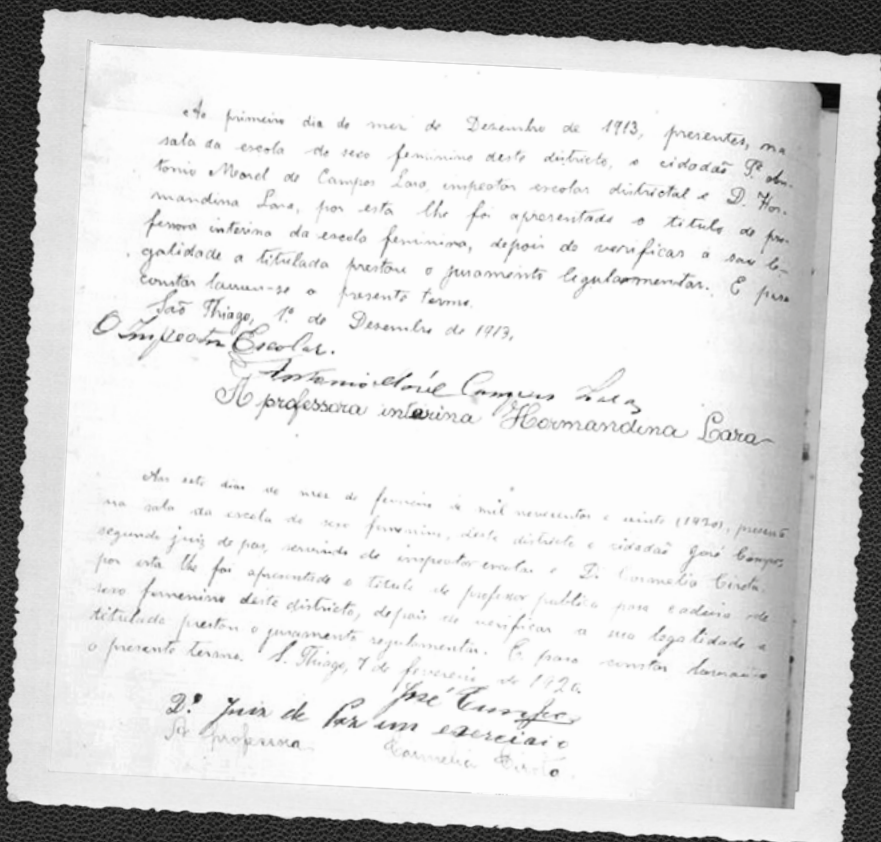 Ao primeiro dia do mez de Dezembro de 1913, presentes, na
sala da escola do sexo feminino deste districto, o cidadão
tonio Morel de Campos Lara, inspector escolar districtal e D. Hor-
mandina Lara, por esta lhe foi apresentado o titulo de pro-
fessora interina da escola feminina, depois de verificar a sua le-
galidade a titulada prestou o juramento regulamentar. E para
constar lavrou-se o presente termo.
São Thiago, 1º de Dezembro de 1913.
O Inspector Escolar.
Antonio Campos Lara
A professora interina Hormandina Lara
Aos sete dias do mez de fevereiro de mil novecentos e vinte (1920), presente
na sala da escola do sexo femenino, deste districto o cidadão José Campos,
segundo juiz de paz, servindo de inspector escolar e D.
por esta lhe foi apresentado o titulo de professor publica para cadeira do
sexo femenino deste districto, depois de verificar a sua legalidade a
titulada prestou o juramento regulamentar. E para constar
o presente termo. S. Thiago, 7 de fevereiro de 1920.
José Campos
2º Juiz de Paz em exercicio
A professora